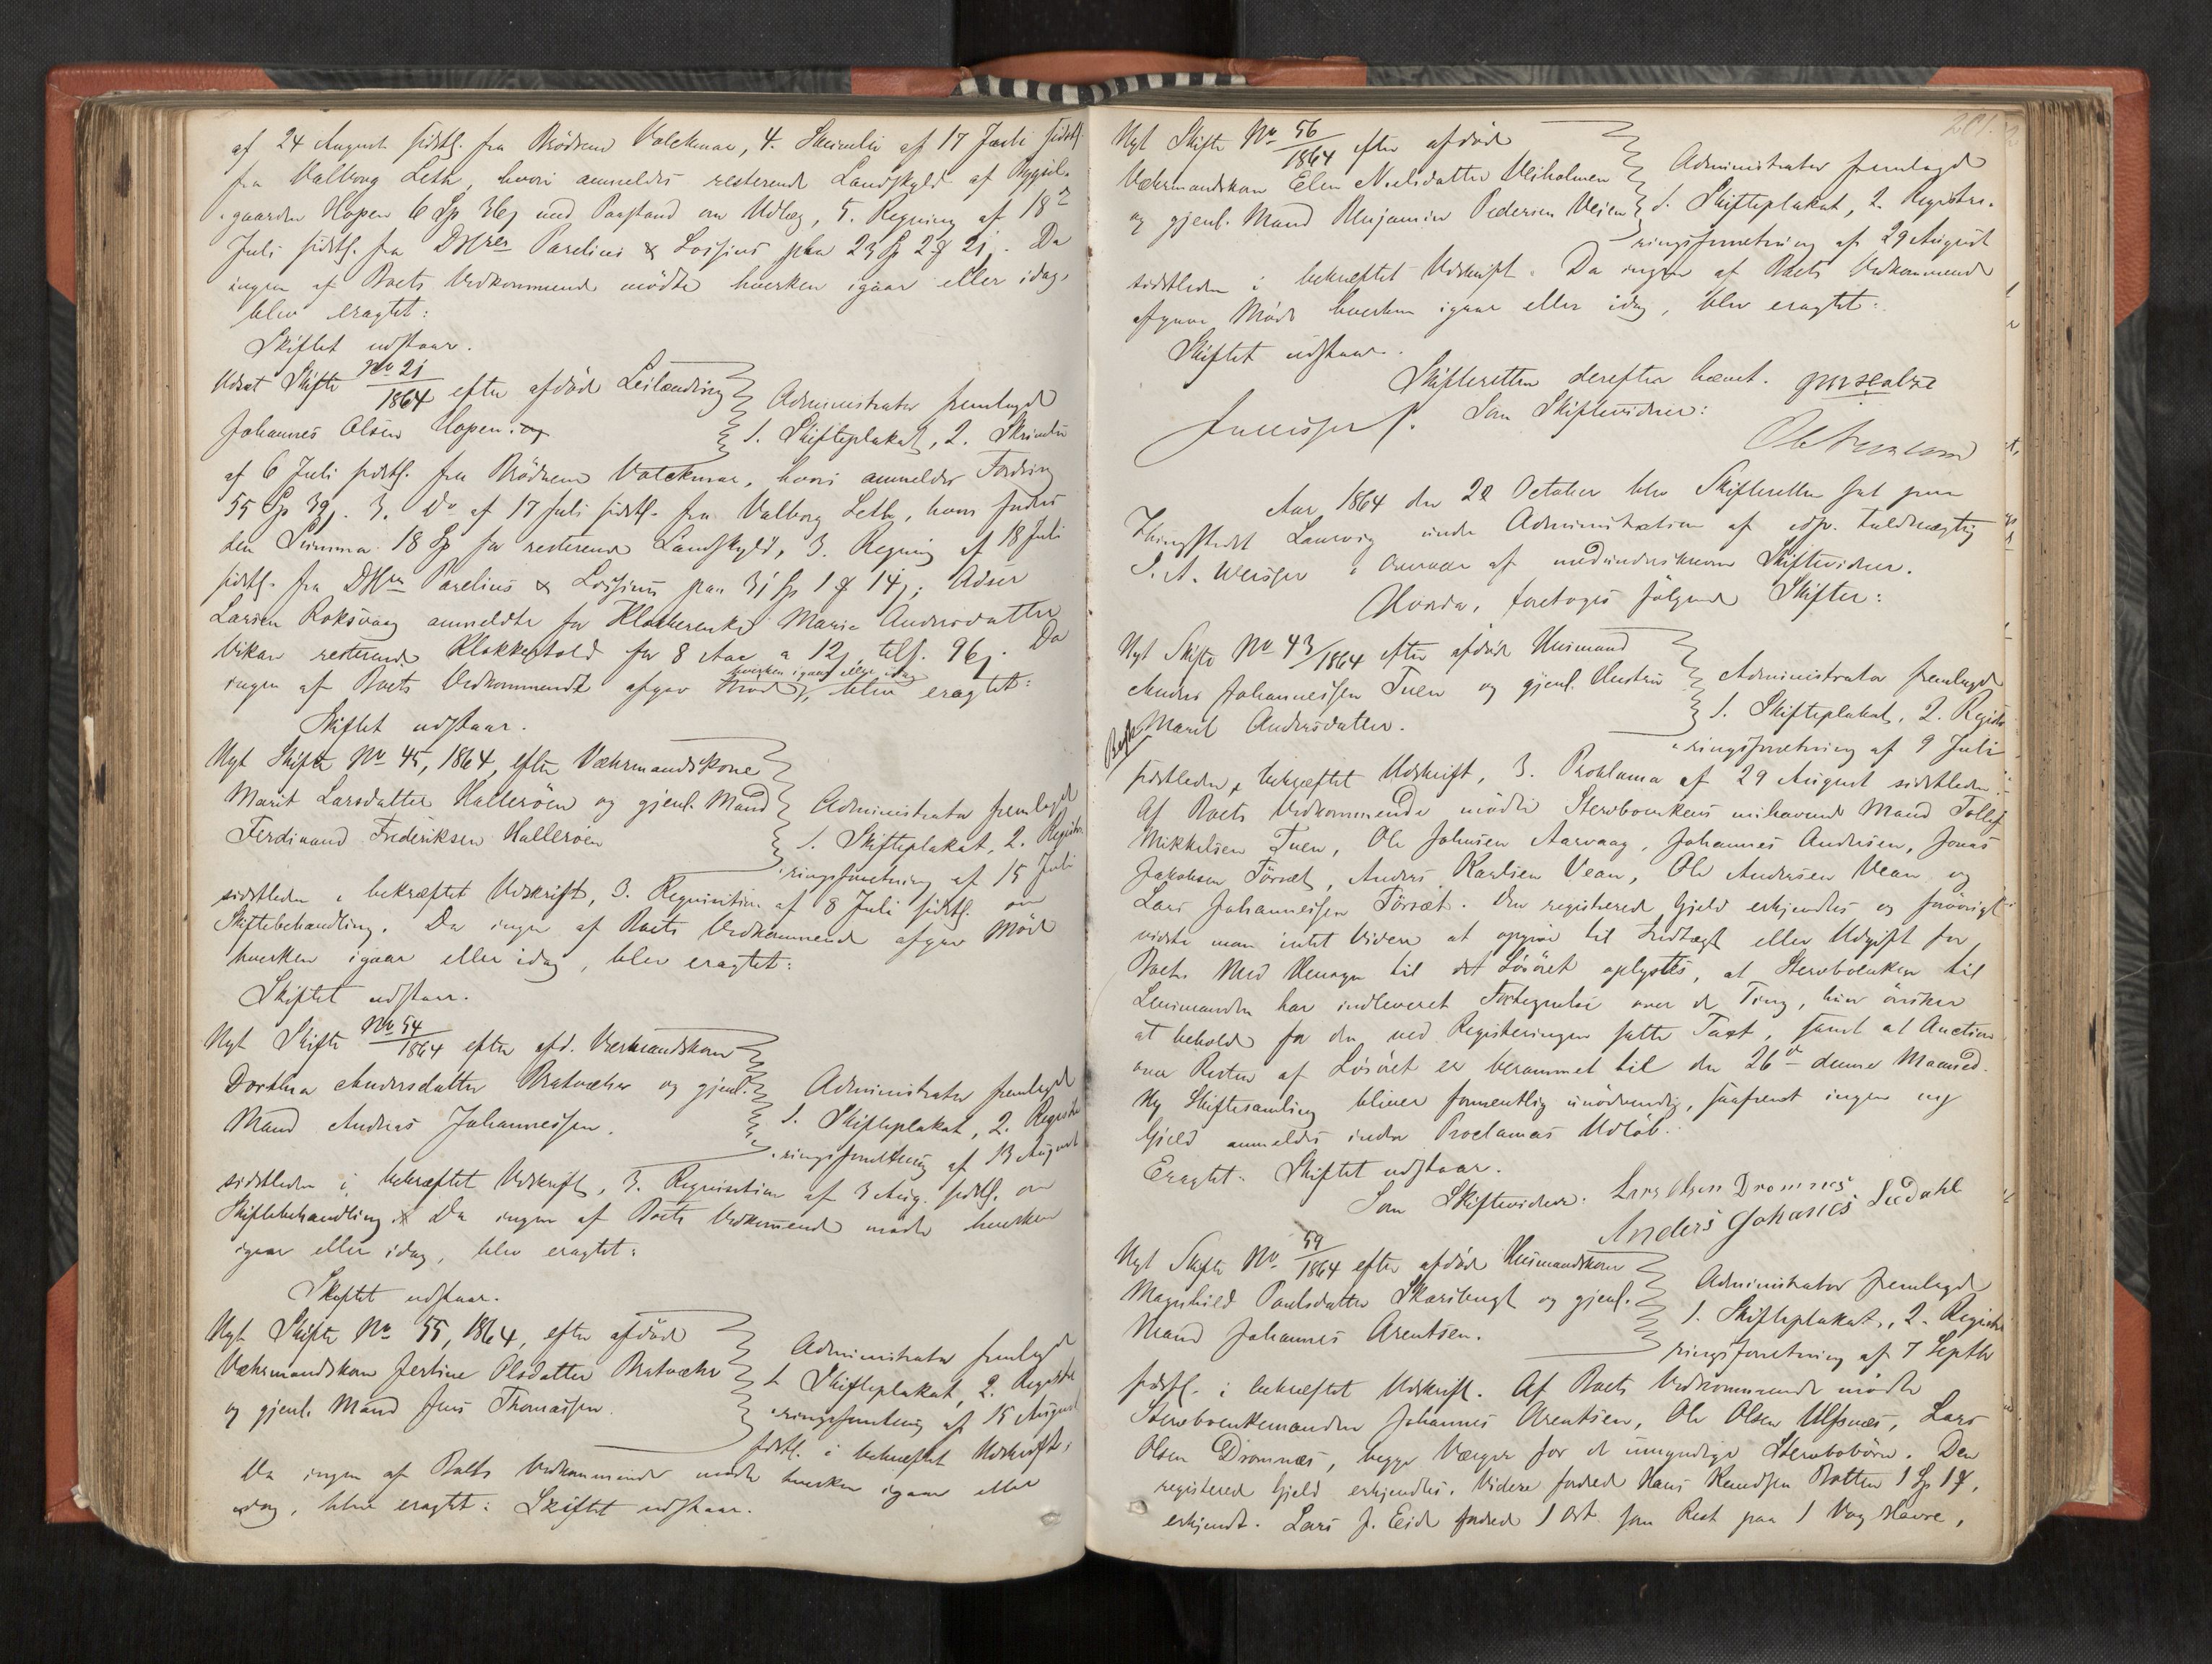 af 24 August sidstl. fra Brødrene Volckmar, 4. Skrivelse af 17 Juli sidstl.
fra Valborg Leth, hvori anmeldes resterende Landskyld af Bygsel-
gaarden Hopen 6 Sp 36 ß med Paastand om Udlæg, 5. Regning af 18de
Juli sidstl. fra DHrer Parelius & Lossius paa 23 Sp 2 21 ß. Da
ingen af Boets Vedkommende mødte hverken igaar eller idag,
blev eragtet:
Skiftet udstaar.
Udsat Skifte No 21/1864 efter afdøde Leilænding
Johannes Olsen Hopen. og
Administrator fremlagde
1. Skifteplakat, 2. Skrivelse
af 6 Juli sidstl. fra Brødrene Volckmar, hvori anmeldes Fordring
55 Sp 39 ß. 3. Do af 17 Juli sidstl. fra Valborg Leth, hvori fordres
den Summa 18 Sp for resterende Landskyld, 3. Regning af 18 Juli
sidstl. fra DHrr Parelius & Lossius paa 31 Sp 1 14 ß;
Larsen Roksvaag anmeldte for Klokkerenke Maria Andersdatter
Vikan resterende Klokkertold for 8 Aar a 12 ß tils. 96 ß. Da
ingen af Boets Vedkommende afgav Møde hverken igaar eller idag, blev eragtet:
Skiftet udstaar.
Nyt Skifte No 45, 1864, efter Værmandskone
Marit Larsdatter Hallerøen og gjenl. Mand
Ferdinand Frederiksen Hallerøen
Administrator fremlagde
1. Skifteplakat, 2. Registe-
ringsforretning af 15 Juli
sidstleden i bekræftet Udskrift, 3. Requisition af 8 Juli sidstl. om
Skiftebehandling. Da ingen af Boets Vedkommende afgav Møde
hverken igaar eller idag, blev eragtet:
Skiftet udstaar.
Nyt Skifte No 54/1864 efter afd. Værmandskone
Dorthea Andersdatter Bratvær og gjenl.
Mand Andreas Johannessen.
Administrator fremlagde
1. Skifteplakat, 2. Registe-
ringsforretning af 13 August
sidstleden i bekræftet Udskrift, 3. Requisition af 3 Aug. sidstl. om
Skiftebehandling. Da ingen af Boets Vedkommende mødte hverken
igaar eller idag, blev eragtet:
Skiftet udstaar.
Nyt Skifte No 55, 1864, efter afdøde
Værmandskone Jertine Olsdatter Bratvær
og gjenl. Mand Jens Thomassen.
Administrator fremlagde
1. Skifteplakat, 2. Registe-
ringsforretning af 15 August
sidstl. i bekræftet Udskrift.
Da ingen af Boets Vedkommende mødte hverken igaar eller
idag, blev eragtet: Skiftet udstaar.
261.
Nyt Skifte No 56/1864 efter afdøde
Værmandskone Elen Nielsdatter Veiholmen
og gjenl. Mand Benjamin Pedersen Veien
Administrator fremlagde
1. Skifteplakat, 2. Registre-
ringsforretning af 29 August
sidstleden i bekræftet Udskrift. Da ingen af Boets Vedkommende
afgav Møde hverken igaar eller idag, blev eragtet:
Skiftet udstaar.
Skifteretten derefter hævet.
Som Skiftevidner:
Aar 1864 den 22 October blev Skifteretten sat paa
Thingstedet Laurvig under Administration af edsv. Fuldmægtig
J. A. Weisser i Overvær af medunderskrevne Skiftevidner.
Hvorda, foretoges følgende Skifter:
Nyt Skifte No 43/1864 efter afdøde Huusmand
Anders Johannessen Tuen og gjenl. Hustru
Marit Andersdatter.
Administrator fremlagde
1. Skifteplakat, 2. Registe-
ringsforretning af 9 Juli
sidstleden i bekræftet Udskrift, 3. Proklama af 29 August sidstleden.
Af Boets Vedkommende mødte Stervboenkens nuhavende Mand Tollef
Mikkelsen Tuen, Ole Johnsen Aarvaag, Johannes Andersen, Jonas
Jakobsen Førsæt, Anders Karlsen Vean, Ole Andersen Vean og
Lars Johannessen Førsæt. Den registrerede Gjeld erkjendtes og forøvrigt
vidste man intet videre at opgive til Indtægt eller Udgift for
Boet. Med Hensyn til det Løsøret oplystes, at Stervboenken til
Lensmanden har indleveret Fortegnelse over de Ting, hun ønsker
at beholde for den ved Registeringen satte Taxt, samt at Auction
over Resten af Løsøret er berammet til den 26de denne Maaned.
Ny Skiftesamling bliver formentlig unødvendig, saafremt ingen ny
Gjeld anmeldes inden Proclamas Udløb.
Eragtet: Skiftet udstaar.
Som Skiftevidner: Lars Olsen Dromnes
Anders Johanes Lidahl
Nyt Skifte No 59/1864 efter afdøde Huusmandskone
Magnhild Paulsdatter Skaribugt og gjenl.
Mand Johannes Arentsen.
Administrator fremlagde
1. Skifteplakat, 2. Registe-
ringsforretning af 7 Septbr
sidstl. i bekræftet Udskrift. Af Boets Vedkommende mødte
Stervboenkemanden Johannes Arentsen, Ole Olsen Ulfsnæs, Lars
Olsen Dromnæs, begge Værger for de umyndige Stervbobørn. Den
registerede Gjeld erkjendtes. Videre fordred Hans Knudsen Botten 1 Sp 1,
erkjendt. Lars J. Eide fordred 1 Ort som Rest paa 1 Vog Havre,